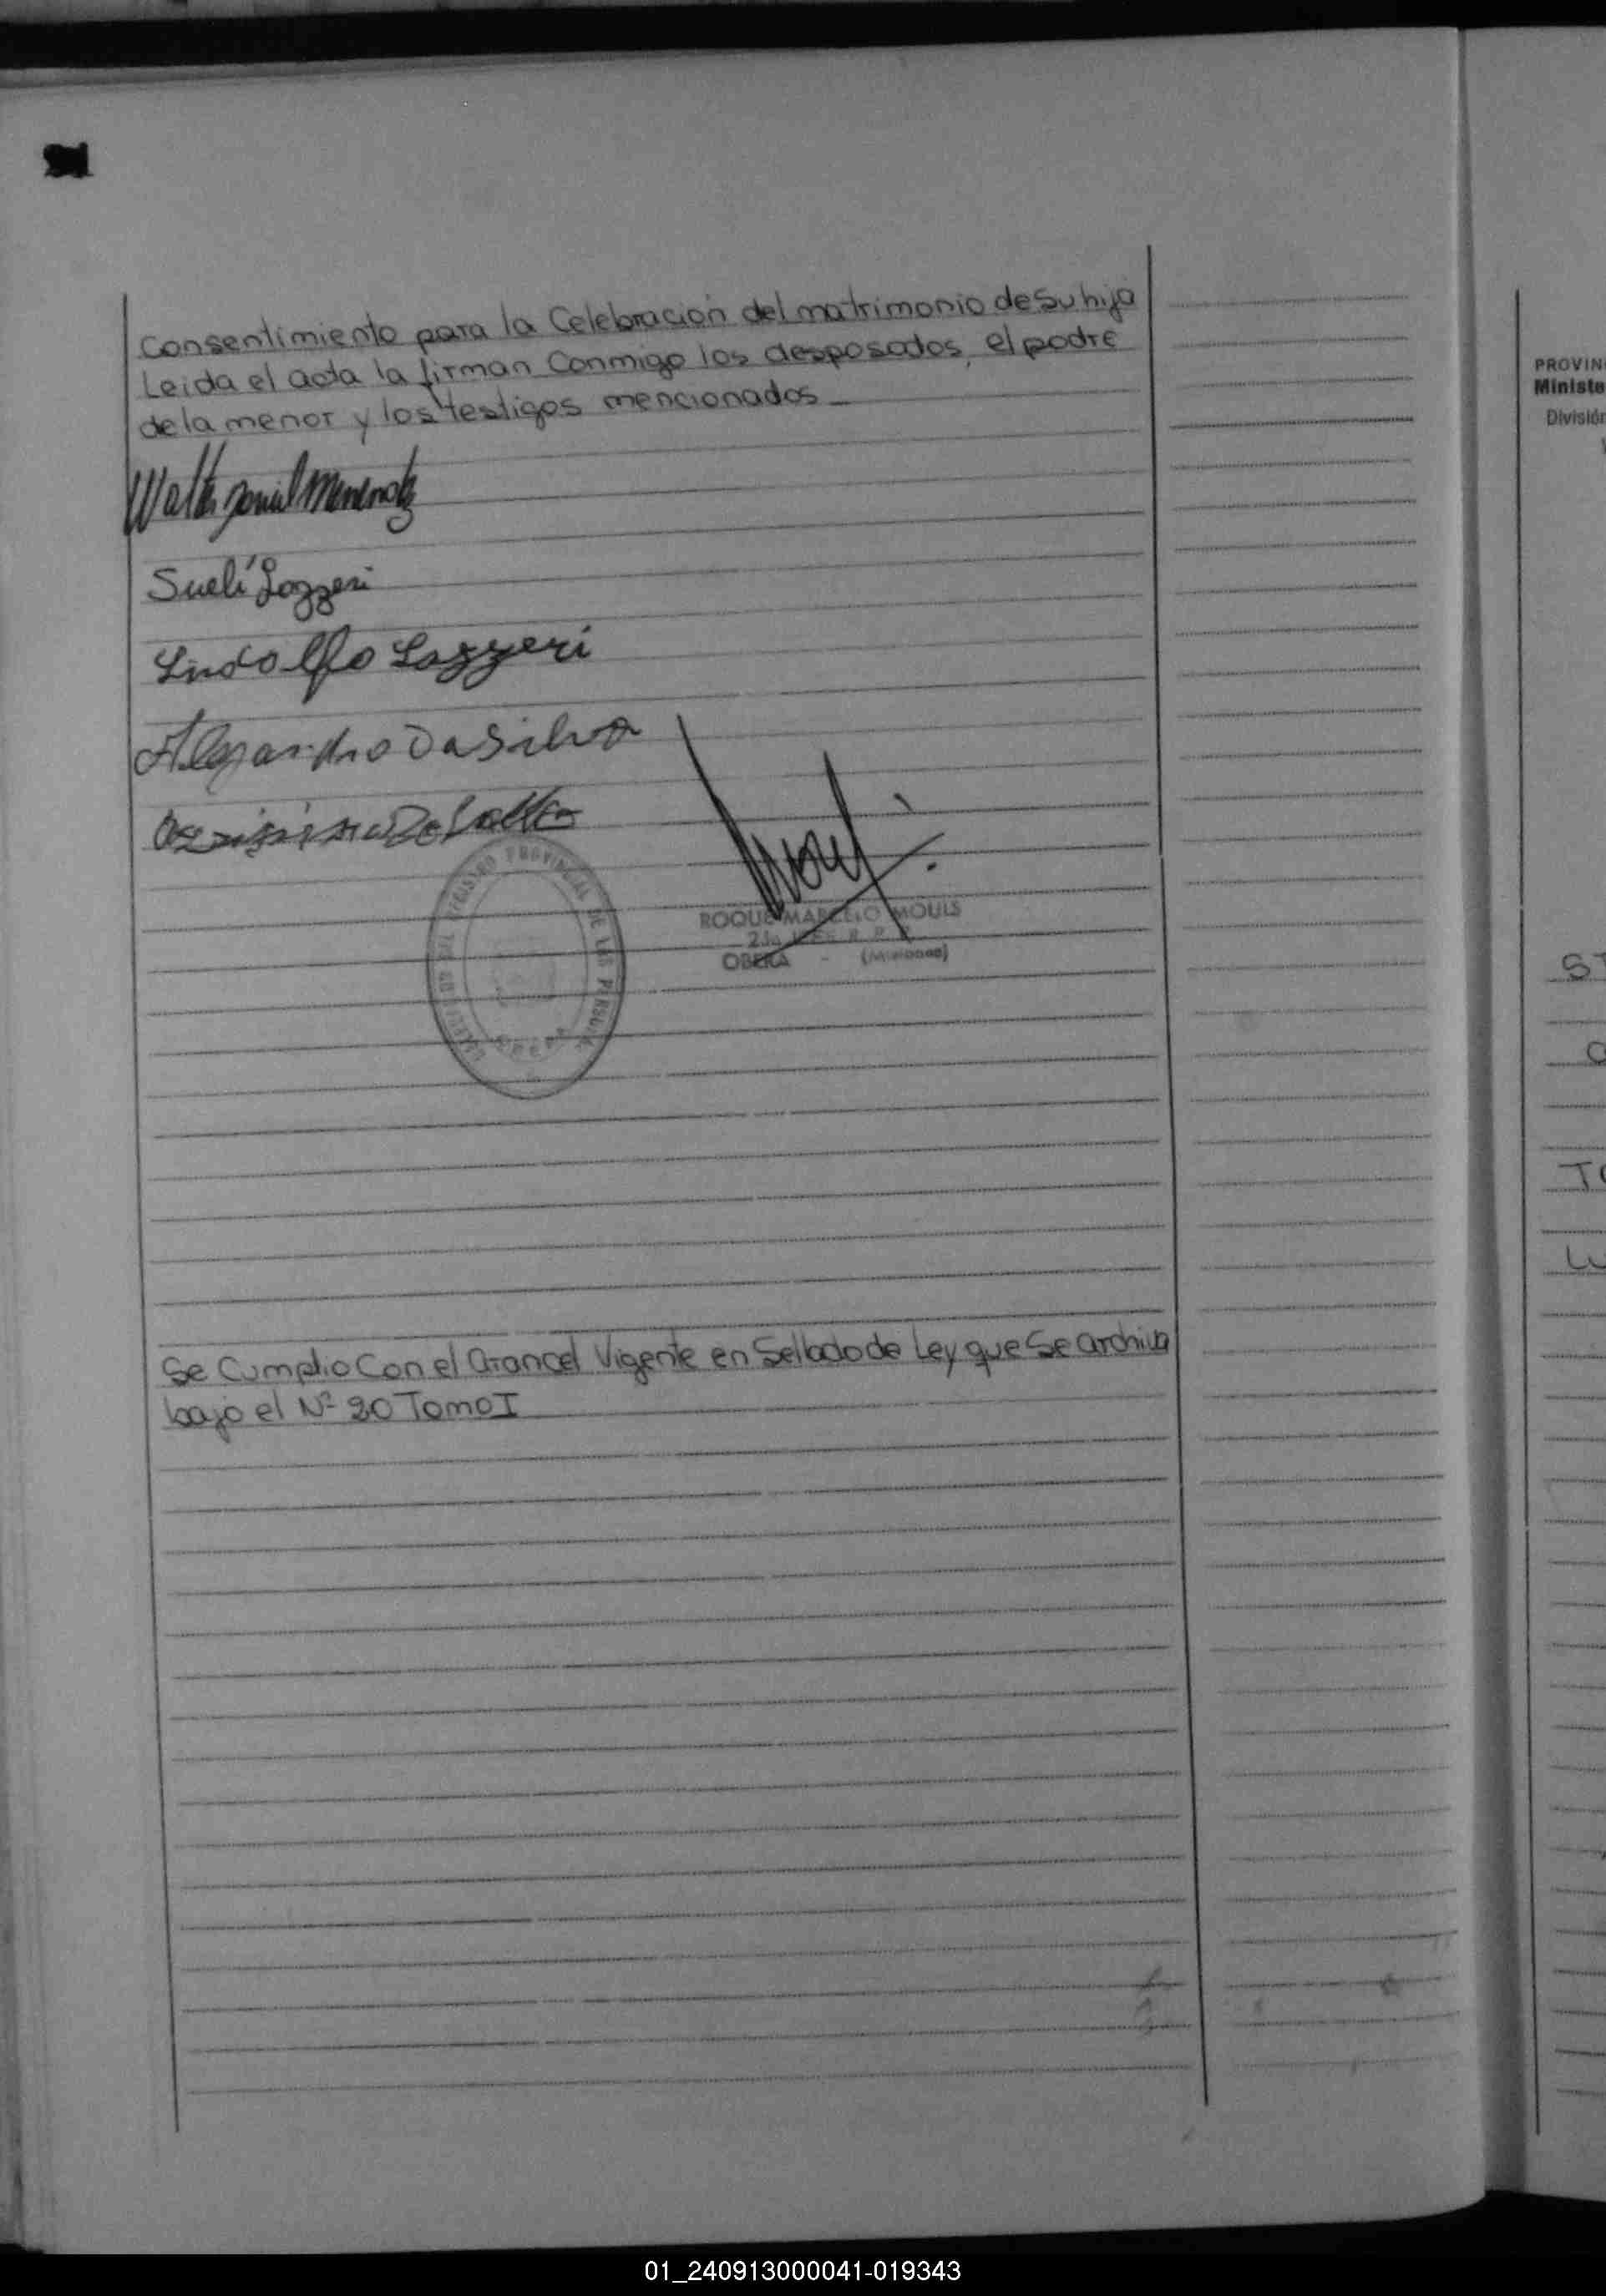 Consentimiento para la Celebración del matrimonio de su hija
Leida el acta la firman Conmigo los desposados, el padre
de la menor y los testigos mencionados
Walter Daniel Menendez
Suelí Lazzeri
Lindolfo Lazzeri
Alejandro Da Silva
REGISTRO PROVINCIAL DE LAS PERSONAS
OBERA
ROQUE MARCELO MOULS
OBERA - (Misiones)
Se Cumplio Con el arancel Vigente en Sellado de Ley que Se archiva
bajo el Nº 20 Tomo I
PROVIN
Ministe
División
01_240913000041-019343